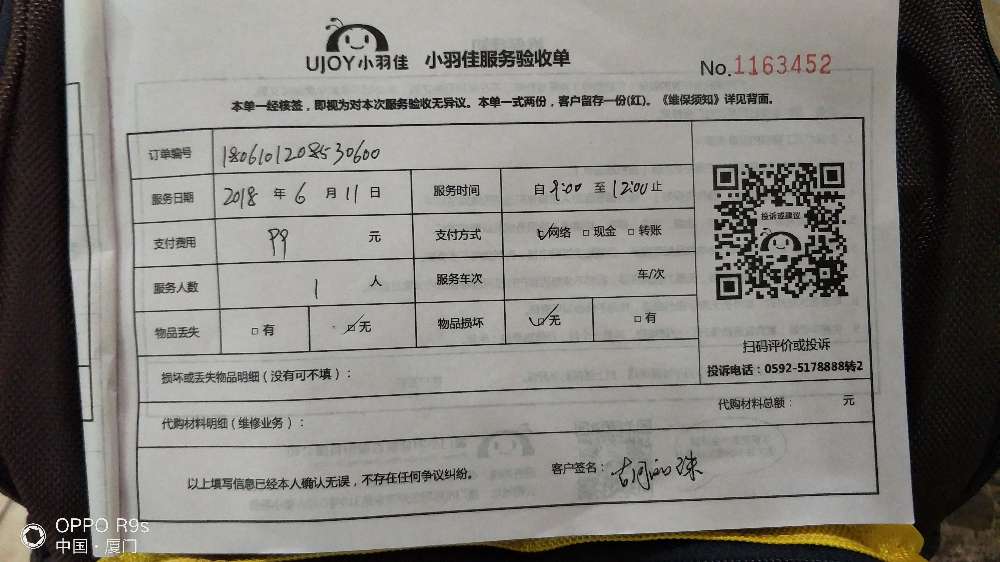 UJOY小羽佳 小羽佳服务验收单
No.1163452
本单一经核签，即视为对本次服务验收无异议。本单一式两份，客户留存一份(红)。《维保须知》详见背面。
订单编号 1806101208530600
服务日期 2018 年 6 月 11 日 服务时间 自 9:00 至 12:00 止
投诉或建议
支付费用 99 元 支付方式 ☑网络 □现金 □转账
服务人数 1 人 服务车次 车/次
物品丢失 □有 ☑无 物品损坏 ☑无 □有
扫码评价或投诉
投诉电话：0592-5178888转2
损坏或丢失物品明细（没有可不填）：
代购材料明细（维修业务）： 代购材料总额： 元
以上填写信息已经本人确认无误，不存在任何争议纠纷。 客户签名：
OPPO R9s
中国·厦门